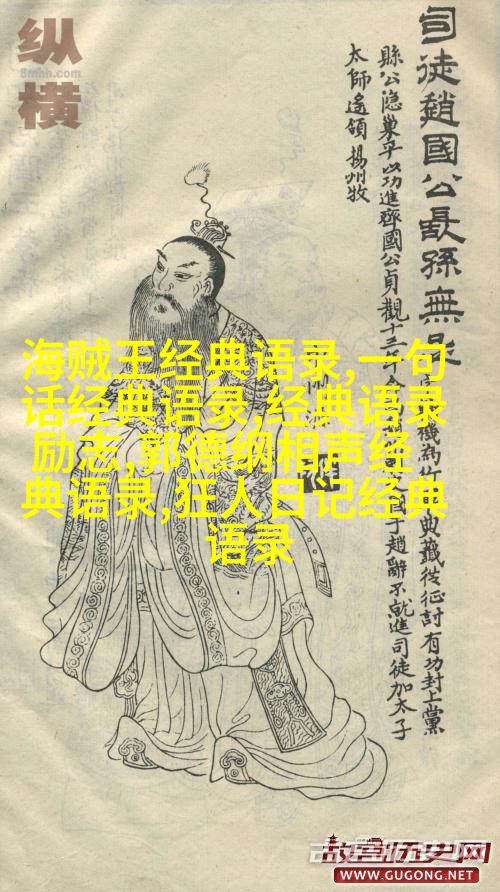 纵
8mhh.com
横
司徒趙國公長孫無忌
機為行 典籤從征討有功封上黨
縣公隱巢平以功進齊國公貞觀十三年 于趙辭不就進司徒加太子
太師遙領揚州牧
海贼王经典语录,一句
话经典语录,经典语录
励志,郭德纲相声经
典语录,狂人日记经典
语录
故宫历史网
WWW.GUGONG.NET